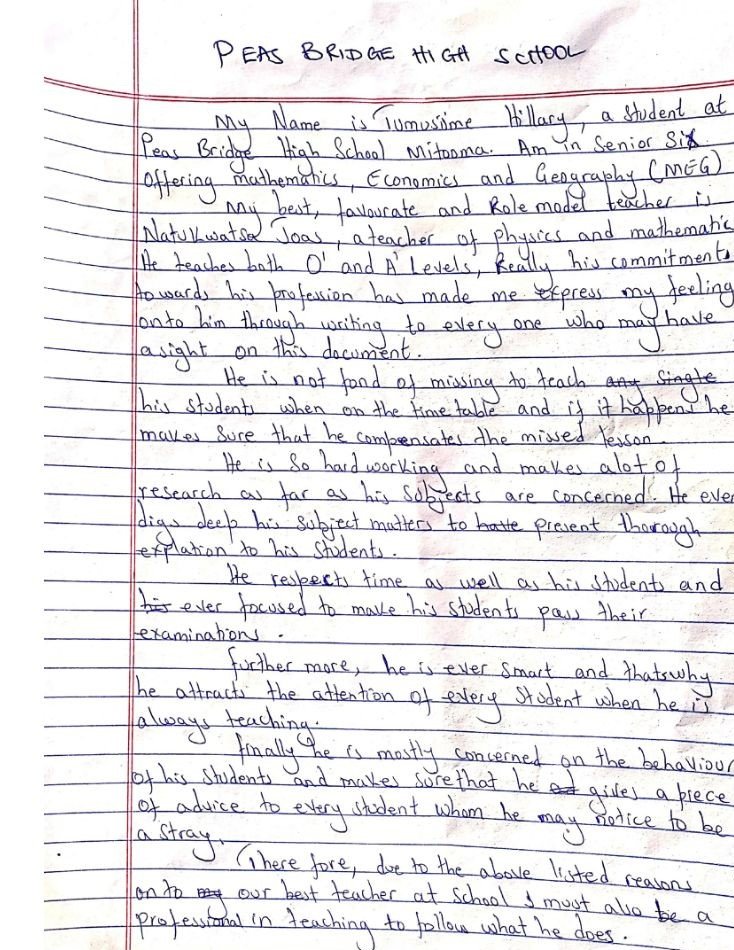 PEAS BRIDGE HIGH SCHOOL
My Name is Tumusiime Hillary, a student at
Peas Bridge High School Mitooma. Am in Senior Six
Offering mathematics, Economics and Geography (MEG)
My best, favourate and Role model teacher is
Natukwatsa Joas, a teacher of physics and mathematic
He teaches both O' and A' Levels, Really his commitments
towards his profession has made me express my feeling
onto him through writing to every one who may have
asight on this document.
He is not fond of missing to teach any single
his students when on the time table and if it happens he
makes sure that he compensates the missed lesson.
He is so hard working and makes alot of
research as far as his subjects are concerned. He ever
digs deep his subject matters to have present thorough
explation to his students.
He respects time as well as his students and
his ever focused to make his students pass their
examinations.
further more, he is ever smart and thatswhy
he attracts the attention of every student when he is
always teaching.
finally he is mostly concerned on the behaviour
of his students and makes sure that he gives a piece
of advice to every student whom he may notice to be
a stray.
There fore, due to the above listed reasons
on to my our best teacher at school I must also be a
professional in teaching to follow what he does.